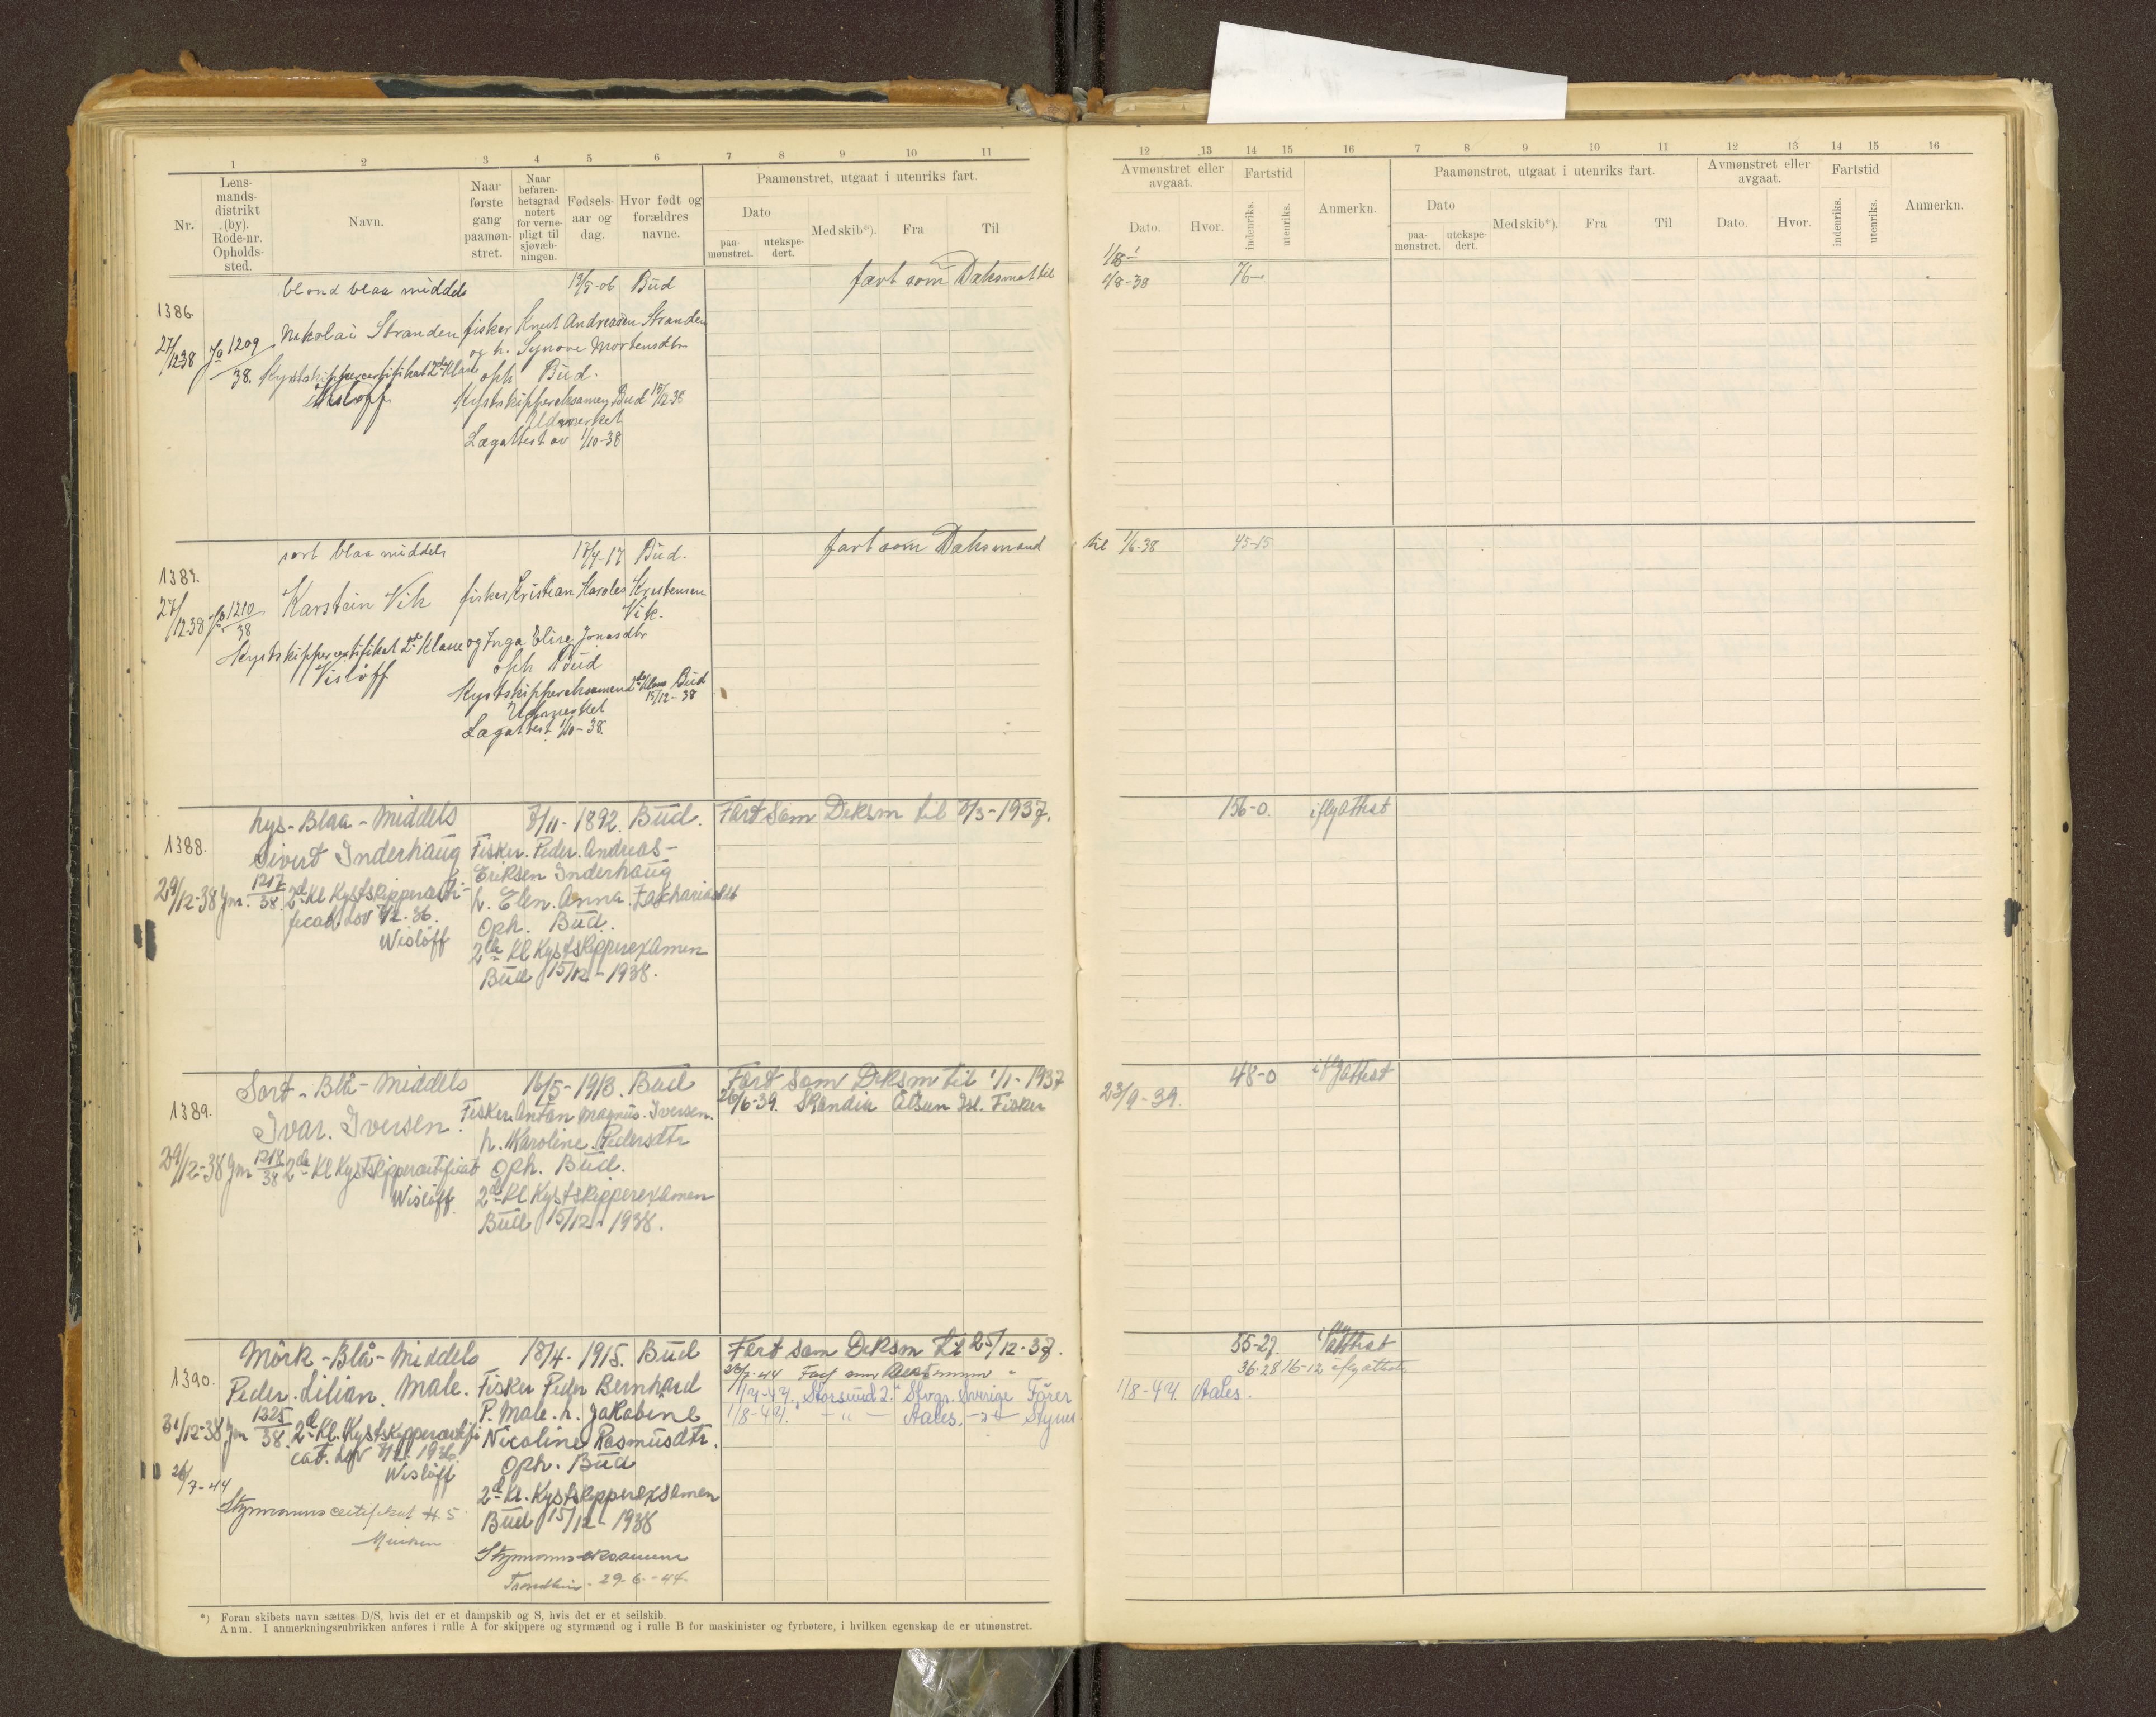 1 2 3 4 5 6 7 8 9 10 11
Nr.
Lens-
mands-
distrikt
(by).
Rode-nr.
Opholds-
sted.
Navn.
Naar
første
gang
paamøn-
stret.
Naar
befaren-
hetsgrad
notert
for verne-
pligt til
sjøvæb-
ningen.
Fødsels-
aar og
dag.
Hvor født og
forældres
navne.
Paamønstret, utgaat i utenriks fart.
Dato
paa-
mønstret.
utekspe-
dert.
Med skib*).
Fra
Til
12 13 14 15 16 7 8 9 10 11 12 13 14 15 16
Avmønstret eller
avgaat.
Dato.
Hvor.
Fartstid
indenriks.
utenriks.
Anmerkn.
Paamønstret, utgaat i utenriks fart.
Dato
paa-
mønstret.
utekspe-
dert.
Med skib*).
Fra
Til
Avmønstret eller
avgaat.
Dato.
Hvor.
Fartstid
indenriks.
utenriks.
Anmerkn.
blond blaa middels 19/5-06 Bud fart som Dæksmat til
1/8-38 76-
1386
Nikolai Stranden fisker Knut Andreasen Stranden
27/12-38 1209/38. og h. Synove Mortensdtr
Kystskippercertifikat 2den Klasse oph Bud.
Wisløff Kystskippereksamen Bud 15/12-38
Udmerket
Lægattest av 1/10-38
sort blaa middels 17/4-17 Bud. fart som Dæksmand til 1/6-38 45-15
1387.
Karstein Vik fisker Kristian Karoles Kristensen
Vik.
27/12-38 1210/38
Kystskippercertifikat 2d Klasse og Inga Elise Jonasdtr
Visløff oph Bud
Kystskippereksamen 2den Klasse Bud 15/12-38
Udmerket
Lægattest 1/10-38.
Lys-Blaa-Middels 7/11-1892. Bud. Fart Som Deksm til 7/3-1937. 156-0. iflg attest
1388.
Sivert Inderhaug Fisker. Peder. Andreas-
Eriksen Inderhaug
29/12-38 Jm. 1217/38 2d Kl Kystskippercerti- h. Elen. Anna. Zachariasdtr
ficat. Lov 7/2-36. Oph. Bud.
Wisløff 2de Kl Kystskipperexamen
Bud 15/12-1938.
Sort-Blå-Middels 16/5-1913. Bud Fart Som Deksm til 1/1-1937 48-0 iflg attest
1389. Fisker. Anton Magnus. Iversen. 26/6-39. Skandia Ålsun Isl. Fisker 23/9-39.
Ivar. Iversen. h. Karoline Pedersdtr
29/12-38 Jm 1218/38 2de Kl Kystskippercertificat Oph. Bud.
Wisløff. 2d Kl Kystskipperexamen
Bud 15/12-1938.
Mörk-Blå-Middels 18/4-1915. Bud Fart Som Deksm til 25/12-37. 55-27. iflg attest
1390. 26/7-44 Fart som 36-28 16-12 iflg attest
Peder. Lilian. Male. Fisker Peder Bernhard 1/4-44. Storsund 2. Stvgr. Sverige Förer 1/8-44 Aales.
P. Male. h. Jakobine 1/8-44. - " - Aales. Styrm.
31/12-38 Jm 1225/38. 2d Kl. Kystskippercertifi Nicoline Rasmusdtr.
cat. Lov 7/2 1936. Oph. Bud
Wisløff
26/7-44 2d Kl. Kystskipperexamen
Styrmannscertifikat H 5 Bud 15/12-1938
Styrmannseksamen
Trondheim. 29-6.-44.
*) Foran skibets navn sættes D/S, hvis det er et dampskib og S, hvis det er et seilskib.
Anm. I anmerkningsrubrikken anføres i rulle A for skippere og styrmænd og i rulle B for maskinister og fyrbøtere, i hvilken egenskap de er utmønstret.